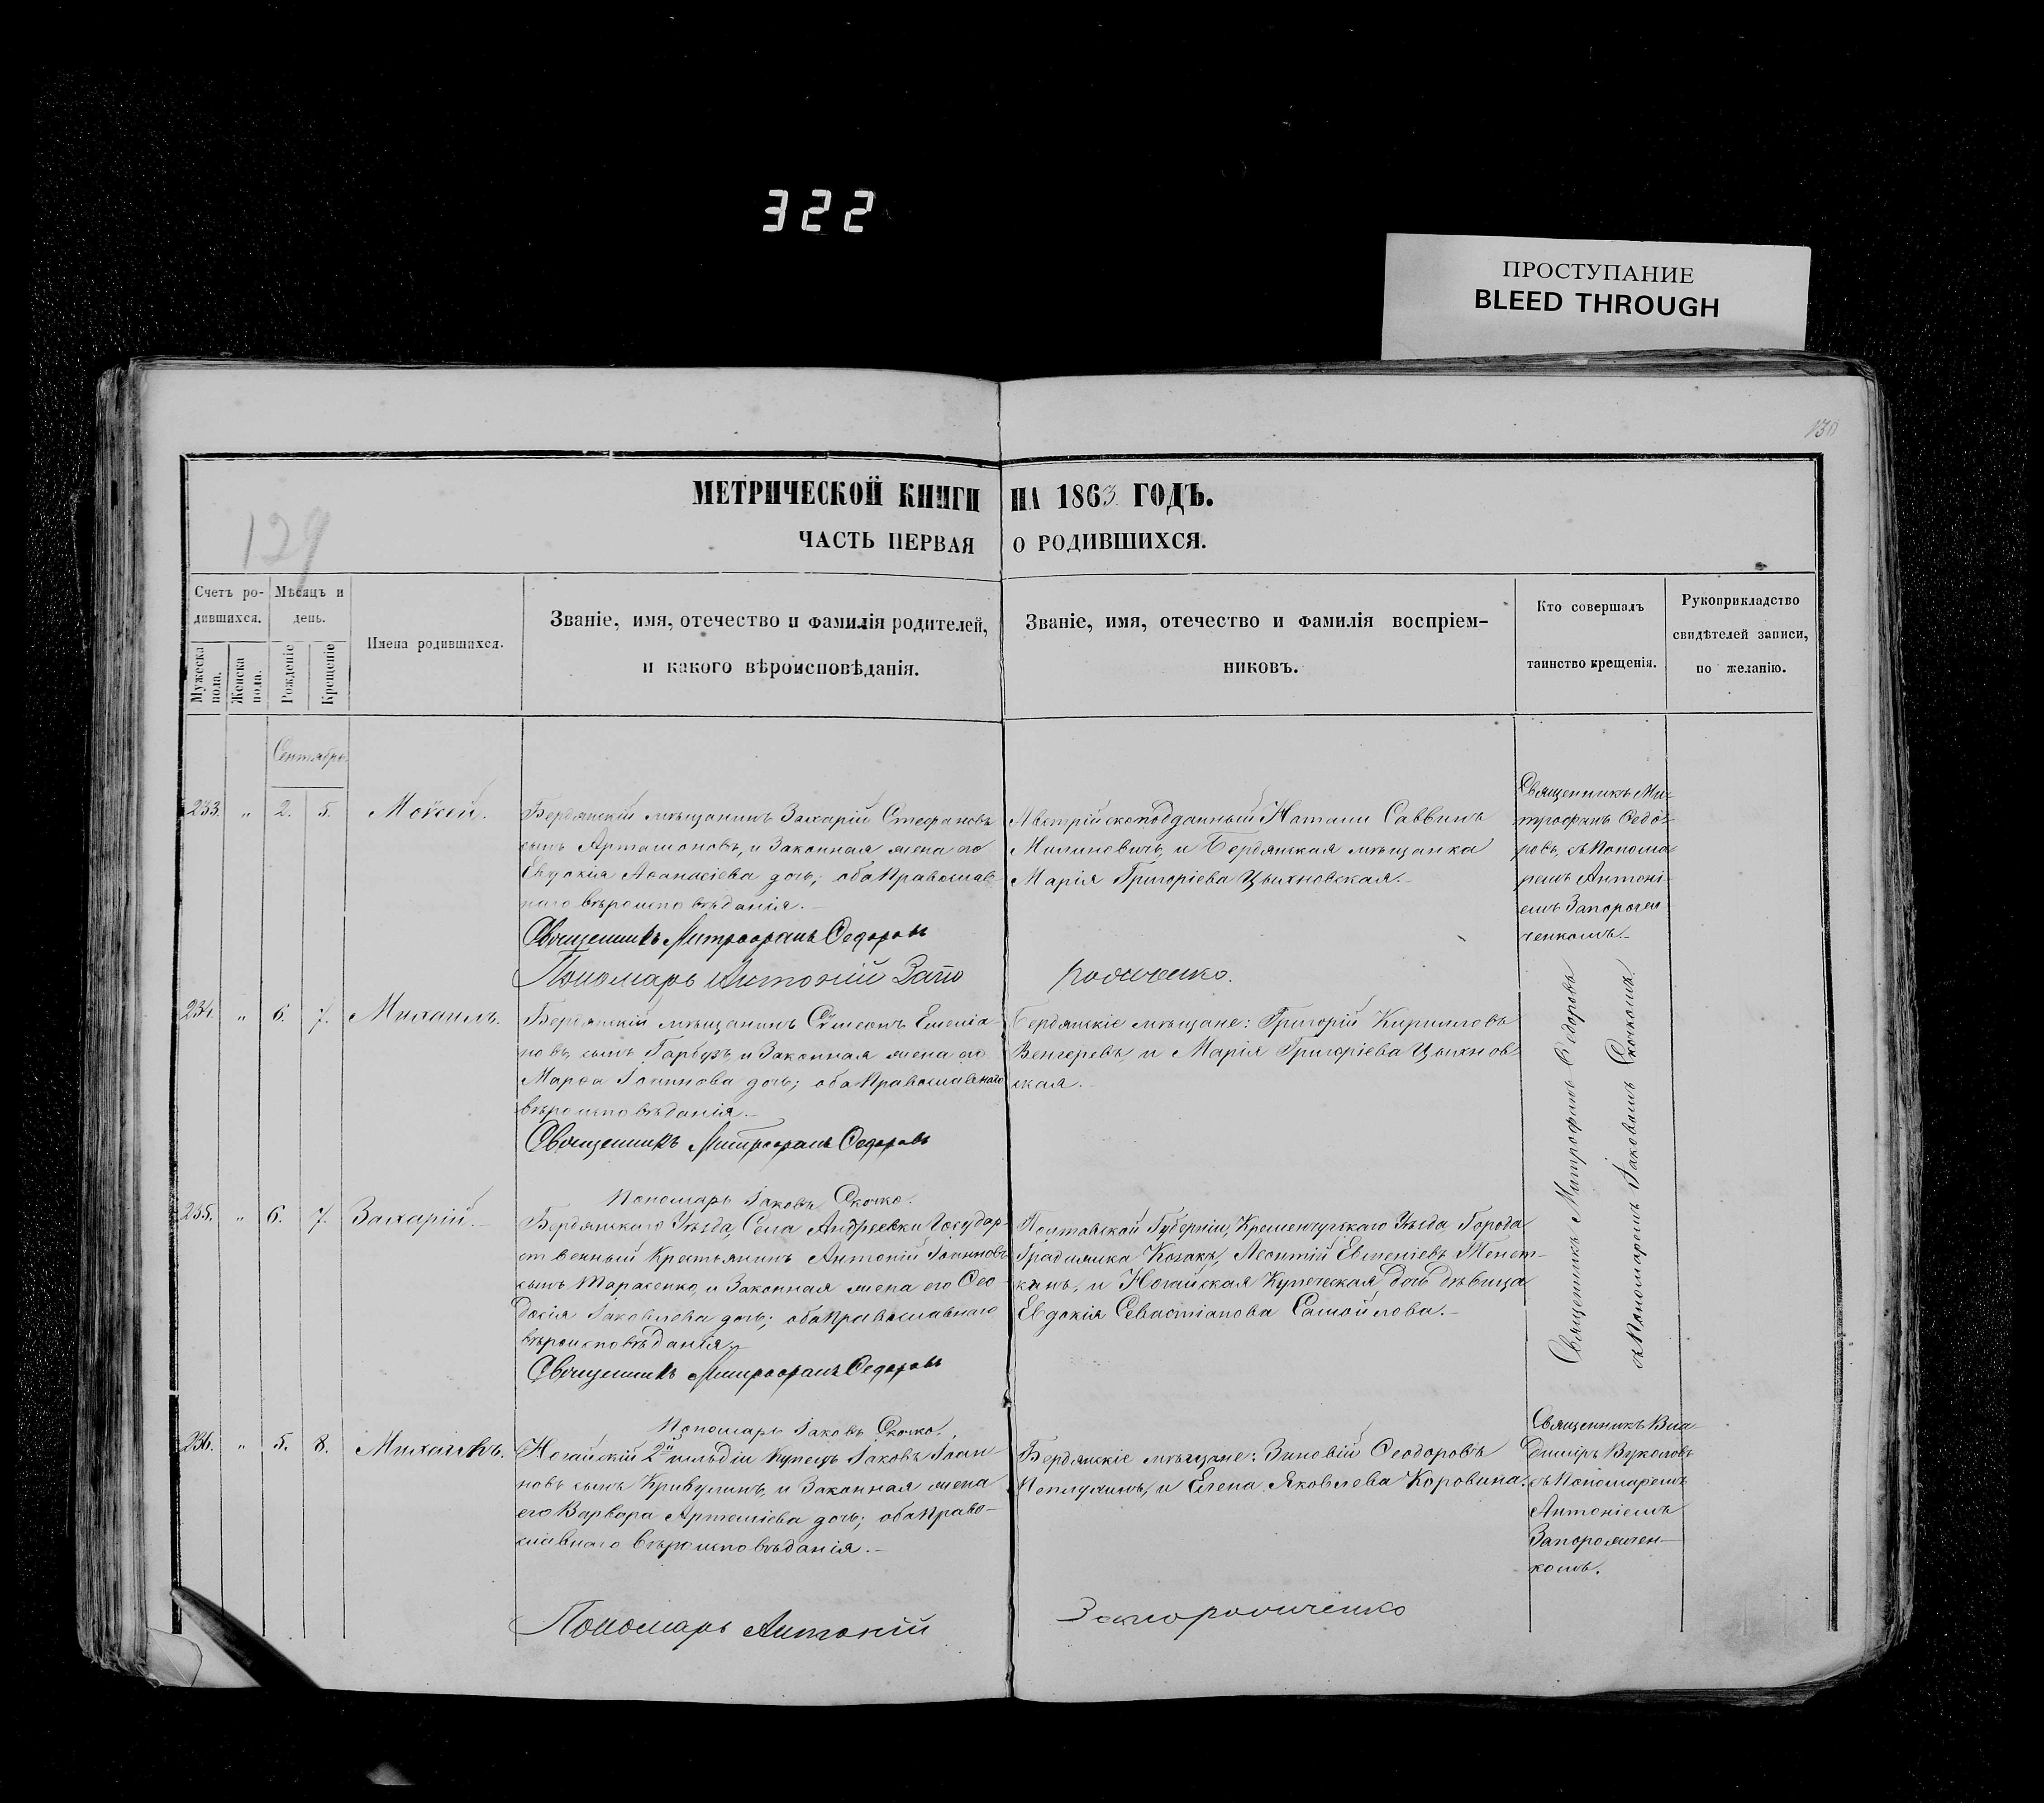 322
ПРОСТУПАНИЕ
BLEED THROUGH
130
129
МЕТРИЧЕСКОЙ КНИГИ НА 1863 ГОДЪ.
ЧАСТЬ ПЕРВАЯ О РОДИВШИХСЯ.
Счетъ ро-
дившихся.
Мужеска пола.
Женска пола.
Мѣсяцъ и
день.
Рожденіе
Крещеніе
Имена родившихся.
Званіе, имя, отечество и фамилія родителей,
и какого вѣроисповѣданія.
Званіе, имя, отечество и фамилія воспріем-
никовъ.
Кто совершалъ
таинство крещенія.
Рукоприкладство
свидѣтелей записи,
по желанію.
Сентябрь
233. „ 2. 5. Моѵсей.
Бердянскій мѣщанинъ Захарій Стефановъ
сынъ Артамоновъ, и Законная жена его
Евдокія Аѳанасіева дочь; оба Православ-
наго вѣроисповѣданія.
Священникъ Митрофанъ Ѳедоровъ
Пономарь Антоній Запо рожченко.
Австрійскоподданный Саввинъ
Милиновичь, и Бердянская мѣщанка
Марія Григоріева Цыхновская.
Священникъ Ми-
трофанъ Ѳедо-
ровъ, съ Понома-
ремъ Антоні-
емъ Запорож-
ченкомъ.
234. „ 6. 7. Михаилъ.
Бердянскій мѣщанинъ Сѵмеонъ Емеліа-
новъ сынъ Гарбузъ, и Законная жена его
Марѳа Іоаннова дочь; оба Православнаго
вѣроисповѣданія.
Священникъ Митрофанъ Ѳедоровъ
Пономарь Іаковъ Скочко.
Бердянскіе мѣщане: Григорій Кириловъ
Венгеревъ, и Марія Григоріева Цыхнов-
ская.
Священникъ Митрофанъ Ѳедоровъ
съ Пономаремъ Іаковомъ Скочкомъ.
235. „ 6. 7. Захарій.
Бердянскаго Уѣзда, Села Андреевки Государ-
ственный Крестьянинъ Антоній Іоанновъ
сынъ Тарасенко, и Законная жена его Ѳео-
досія Іаковлева дочь; оба Православнаго
вѣроисповѣданія.
Священникъ Митрофанъ Ѳедоровъ
Пономарь Іаковъ Скочко.
Полтавской Губерніи, Кременчугскаго Уѣзда Города
Градижска Козакъ, Леонтій Евменіевъ
и Ногайская Купеческая дочь дѣвица
Евдокія Севастіанова Самойлова.
236. „ 5. 8. Михаилъ.
Ногайскій 2й гильдіи Купецъ Іаковъ Іоан-
новъ сынъ Кривулинъ, и Законная жена
его Варвара Артеміева дочь; оба Право-
славнаго вѣроисповѣданія.
Пономарь Антоній Запорожченко
Бердянскіе мѣщане: Зиновій Ѳеодоровъ
и Елена Яковлева Коровина.
Священникъ Вла-
диміръ Вуколовъ
съ Пономаремъ
Антоніемъ
Запорожчен-
комъ.